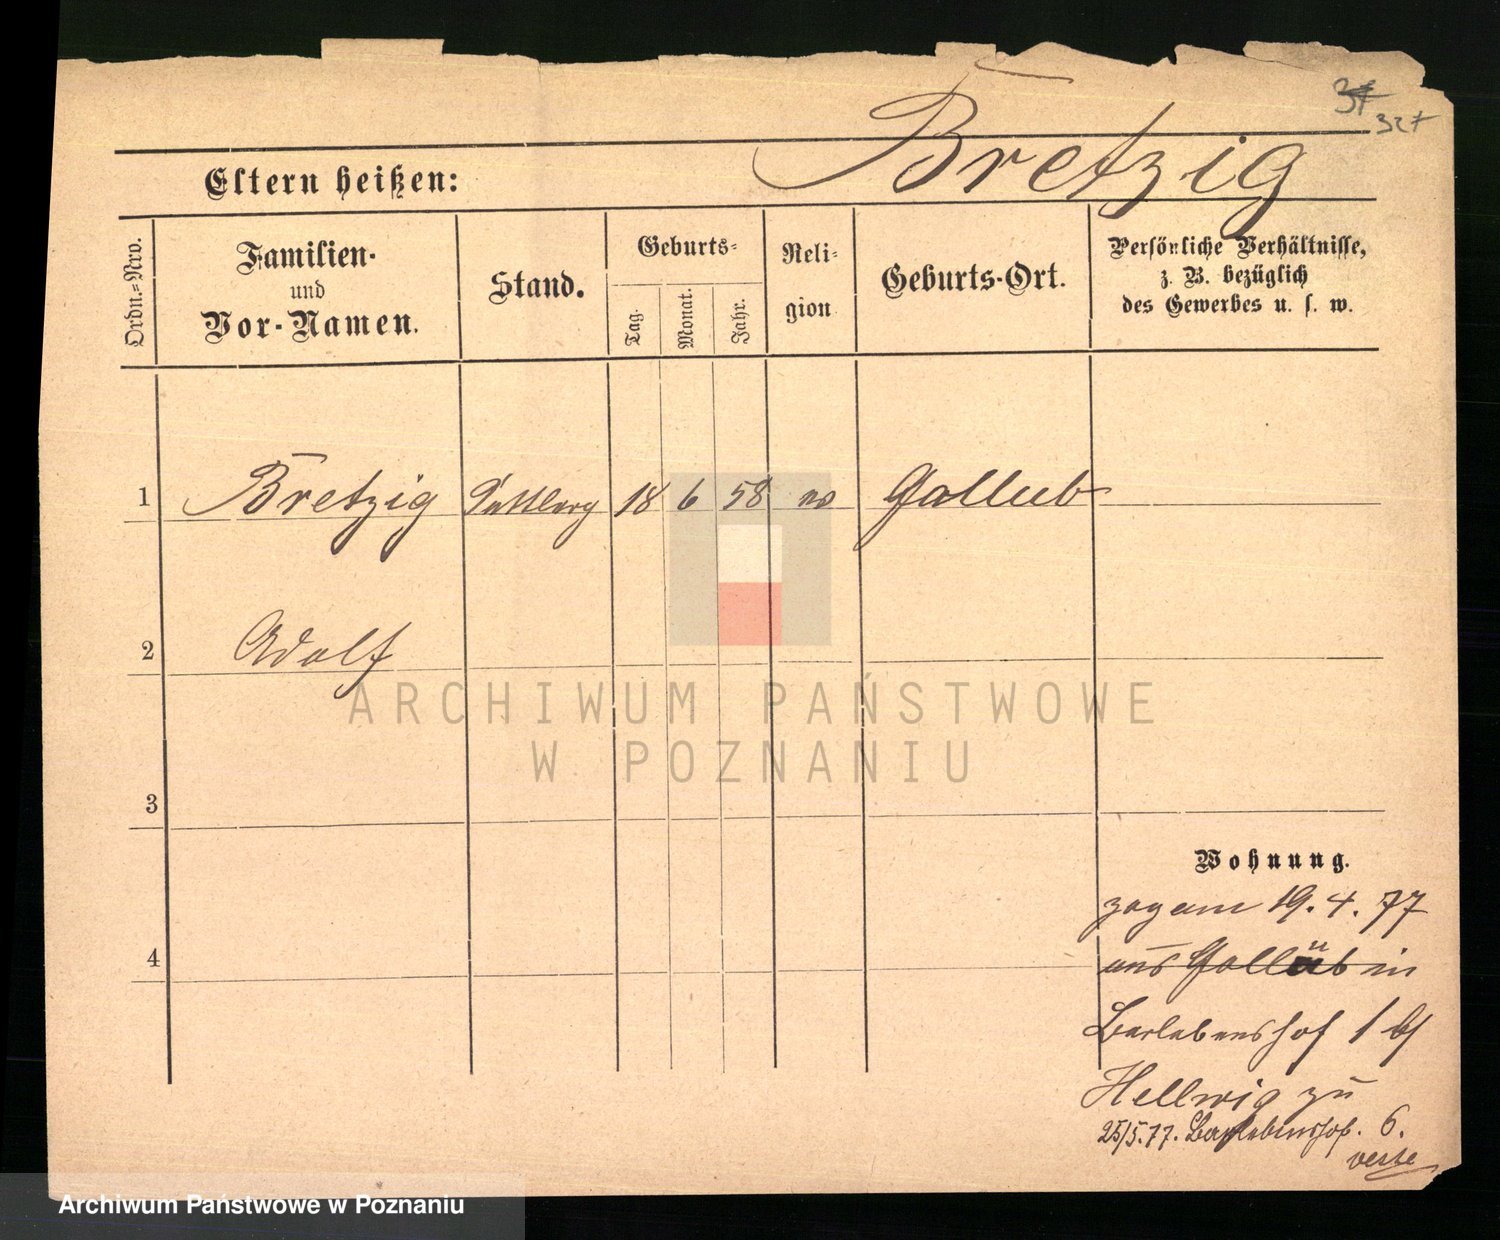 327
Bretzig
Eltern heißen:
Ordn.-Nro.
Familien-
und
Vor-Namen.
Stand.
Geburts-
Tag.
Monat.
Jahr.
Reli-
gion
Geburts-Ort.
Persönliche Verhältnisse,
z. B. bezüglich
des Gewerbes u. s. w.
1 Bretzig 18 6 58 ev Gollub
2 Adolf
3
4
Wohnung.
zog am 19. 4. 77
aus Gollüb in
Berlebenshof 1 bj
Hellwig zu
25/5.77. Berlebenshof. 6.
ARCHIWUM PAŃSTWOWE
W POZNANIU
Archiwum Państwowe w Poznaniu